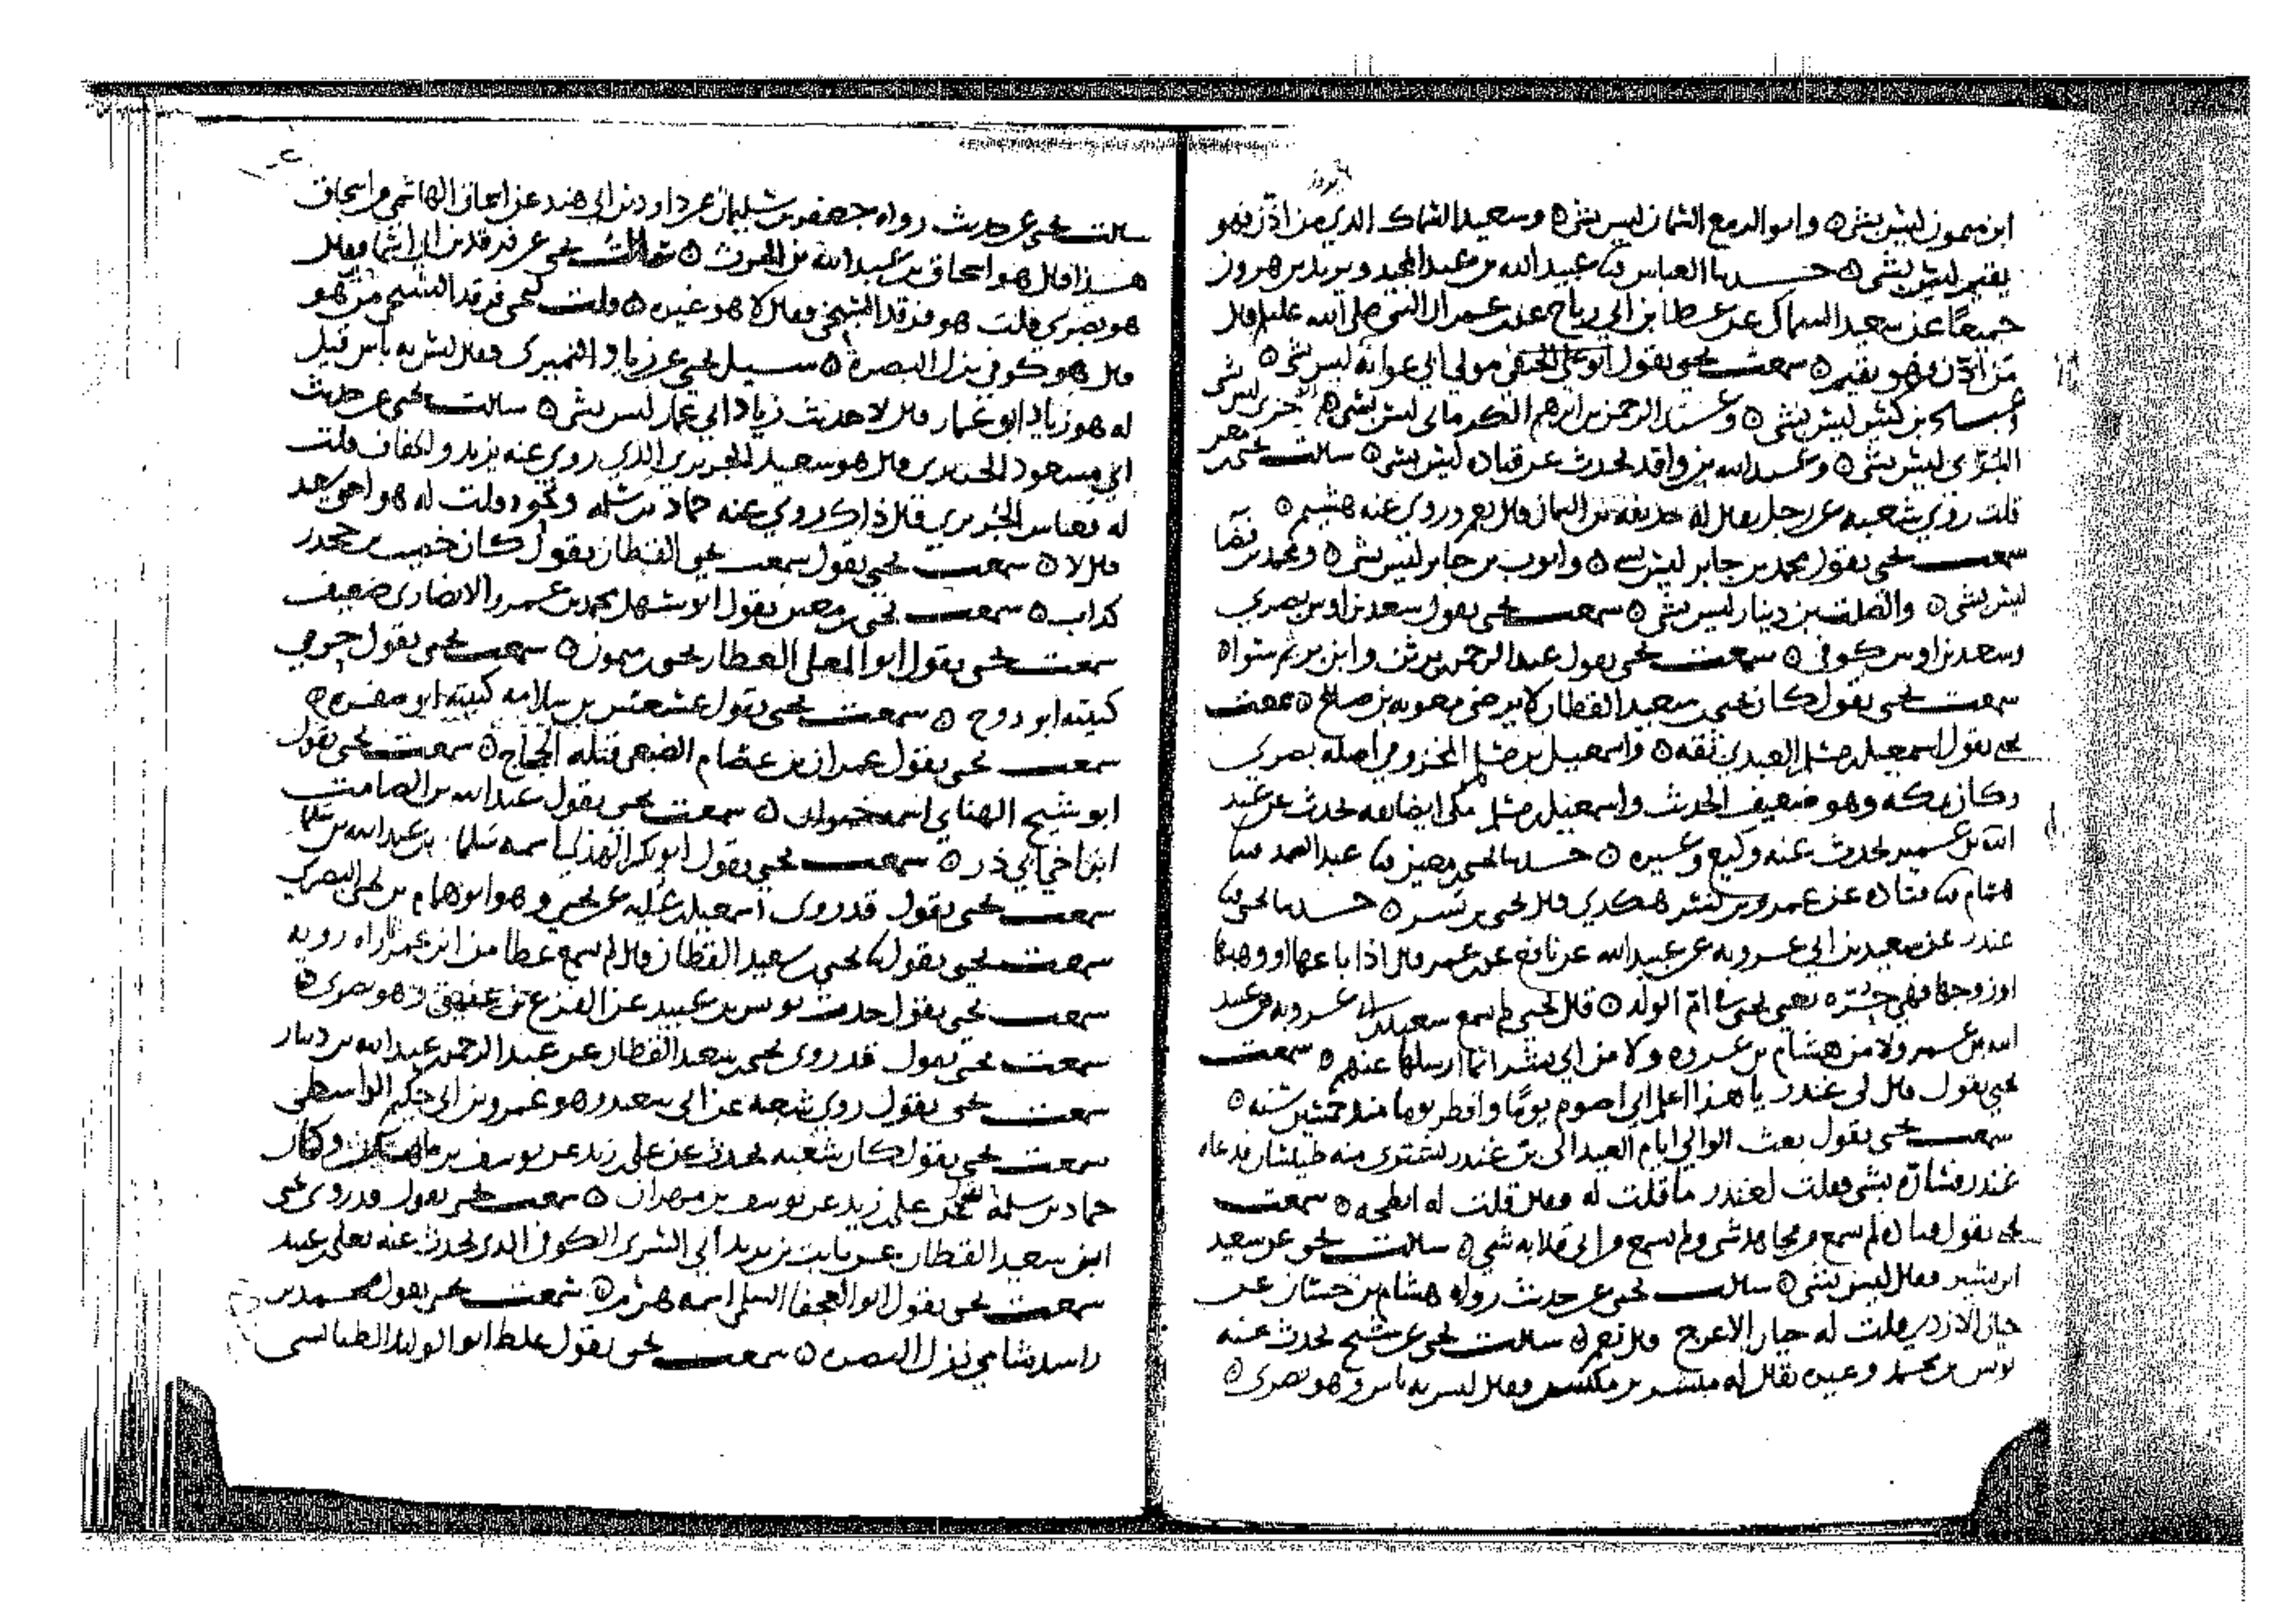 ابن ميمون ليس بشيء ه وابو الدمع الشمان ليس بشيء ه وسعيد السماك الذي من اذن فهو
يقيم ليس بشيء ه حدثنا العباس ثنا عبيد الله بن عبد المجيد ويزيد بن هرون
جميعا عن سعيد السماك عن عطا بن ابي رباح عن ابن عمر ان النبي صلى الله عليه قال
من اذن فهو يقيم ه سمعت يحيى يقول ابو علي الحنفي مولى ابي عوانه ليس بشيء ه
بن كثير ليس بشيء ه وعبد الرحمن بن ابرهيم الكرماني ليس بشيء
ليس بشيء ه وعبد الله بن واقد يحدث عن قتاده ليس بشيء ه سالت يحيى
قلت روى شعبه عن رجل يقال له حذيفه بن اليمان قال نعم وروى عنه هشيم ه
سمعت يحيى يقول محمد بن جابر ليس بشيء ه وايوب بن جابر ليس بشيء ه ومحمد بن
ليس بشيء ه والصلت بن دينار ليس بشيء ه سمعت يحيى يقول سعد بن اوس بصري
وسعد بن اوس كوفي ه سمعت يحيى يقول عبد الرحمن بن برثن وابن برثم سواه
سمعت يحيى يقول كان يحيى بن سعيد القطان لا يرضى معويه بن صالح ه سمعت
يحيى يقول اسمعيل بن مسلم العبدي ثقه ه واسمعيل بن مسلم المخزومي اصله بصري
وكان بمكه وهو ضعيف الحديث واسمعيل بن مسلم مكي ايضا ثقه يحدث عن عبد
الله بن عبيد يحدث عنه وكيع وغيره ه حدثنا يحيى بن معين ثنا عبد الصمد ثنا
همام ثنا قتاده عن عمرو بن كنشر هكذي قال يحيى بن نسر ه حدثنا يحيى ثنا
غندر عن سعيد بن ابي عروبه عن عبيد الله عن نافع عن ابن عمر قال اذا باعها او وهبها
او زوجها فهي حره يعني يحيى ام الولد ه قال يحيى لم يسمع سعيد بن ابي عروبه من عبيد
الله بن عمر ولا من هشام بن عروه ولا من ابي بشر انما ارسلها عنهم ه سمعت
يحيى يقول قال لي غندر يا هذا اعلم اني اصوم يوما وافطر يوما منذ خمسين سنه ه
سمعت يحيى يقول بعث الوالي ايام العيد الى غندر يشتري منه طيلسان فدعاه
غندر فساره بشيء فقلت لغندر ما قلت له فقال قلت له ه سمعت
يحيى يقول قتاده لم يسمع من مجاهد شيء ولم يسمع من ابي قلابه شيء ه سالت يحيى عن سعيد
ابن بشير فقال ليس بشيء ه سالت يحيى عن حديث رواه هشام بن حسان عن
حيان الازدي قلت له حيان الاعرج قال نعم ه سالت يحيى عن شيخ يحدث عنه
يونس بن محمد وغيره يقال له ميسر بن مكسر فقال ليس به باس وهو بصري ه
سالت يحيى عن حديث رواه جعفر بن سليمان عن داود بن ابي هند عن اسحاق الهاشمي من اسحاق
هذا قال هو اسحاق بن عبد الله بن الحرث ه سالت يحيى عن فرقد فقال
هو بصري قلت هو فرقد السبخي فقال لا هو غيره ه قلت ليحيى فرقد السبخي من هو
قال هو كوفي نزل البصره ه سيل يحيى عن زياد النميري فقال ليس به باس قيل
له هو زياد ابو عمار قال لا حديث زياد ابي عمار ليس بشيء ه سالت يحيى عن حديث
ابي مسعود الجريري قال هو سعيد الجريري الذي روى عنه يزيد والخفاف قلت
له فعباس الجريري قال ذاك روى عنه حماد بن سلمه ونحوه قلت له هو اخو سعيد
قال لا ه سمعت يحيى يقول سمعت يحيى القطان يقول كان خصيب بن جحدر
كذاب ه سمعت يحيى بن معين يقول ابو سهل محمد بن عمرو الانصاري ضعيف
سمعت يحيى يقول ابو المعلى العطار يحيى بن ميمون ه سمعت يحيى يقول حرمي
كنيته ابو روح ه سمعت يحيى يقول عشعس بن سلامه كنيته ابو صفره ه
سمعت يحيى يقول عمران بن عصام الضبعي قتله الحجاج ه سمعت يحيى يقول
ابو شيخ الهنائي اسمه خيوان ه سمعت يحيى يقول عبد الله بن الصامت
ابن اخي ابي ذر ه سمعت يحيى يقول ابو بكر الهذلي اسمه سلما بن عبد الله بن سلما
سمعت يحيى يقول قد روى اسمعيل بن عليه عن يحيى وهو ابو همام بن يحيى البصري
سمعت يحيى يقول ثنا يحيى بن سعيد القطان قال لم يسمع عطا من ابن عمر انما راه رويه
سمعت يحيى يقول حدث يونس بن عبيد عن الفزع عن عقيق وهو بصري ه
سمعت يحيى يقول قد روى يحيى بن سعيد القطان عن عبد الرحمن بن عبد الله بن دينار
سمعت يحيى يقول روى شعبه عن ابي سعيد وهو عمرو بن ابي حكيم الواسطي
سمعت يحيى يقول كان شعبه يحدث عن علي بن زيد عن يوسف بن ماهك وكان
حماد بن سلمه يحدث عن علي بن زيد عن يوسف بن مهران ه سمعت يحيى يقول قد روى يحيى
ابن سعيد القطان عن ثابت بن يزيد ابي السري الكوفي الذي يحدث عنه يعلى بن عبيد
سمعت يحيى يقول ابو العجفا السلمي اسمه هرم ه سمعت يحيى يقول محمد بن
راشد شامي نزل البصره ه سمعت يحيى يقول غلط ابو الوليد الطيالسي